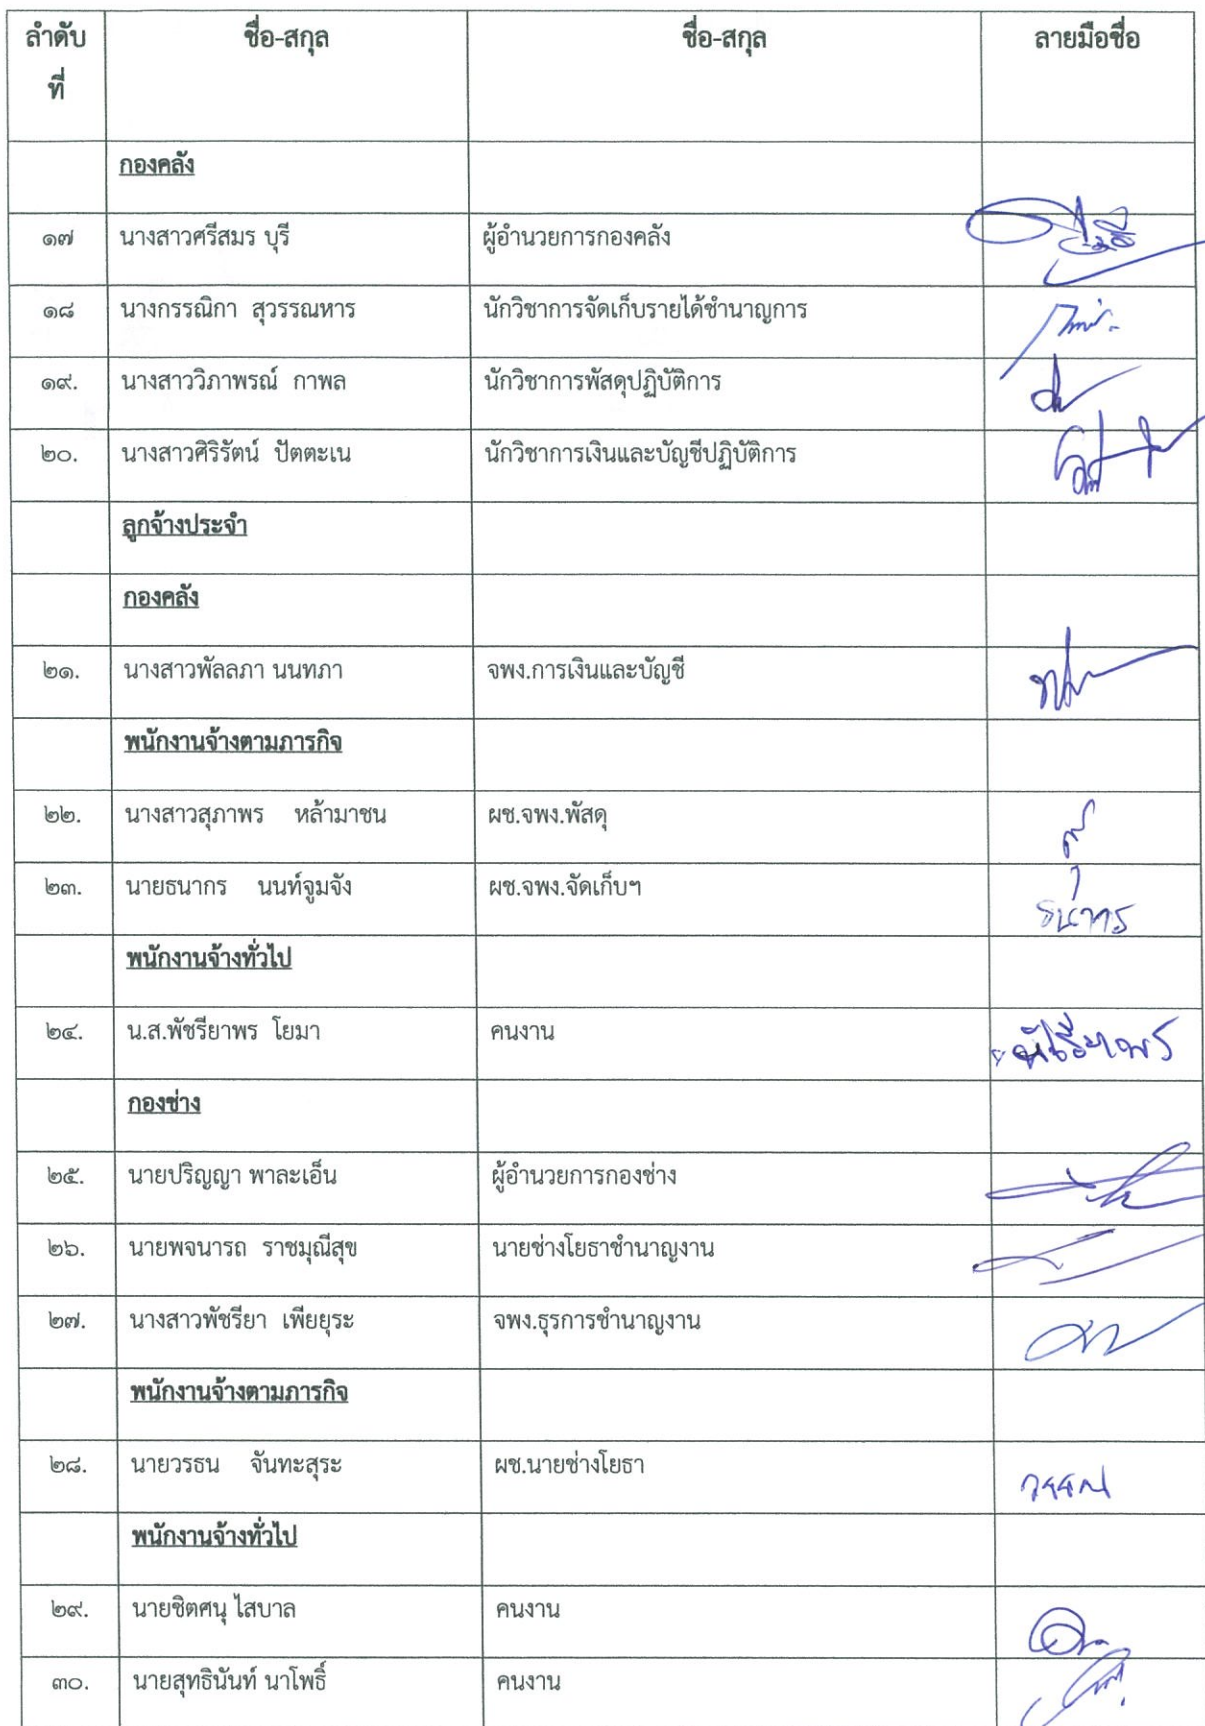 ลำดับที่ ชื่อ-สกุล ชื่อ-สกุล ลายมือชื่อ
กองคลัง
๑๗ นางสาวศรีสมร บุรี ผู้อำนวยการกองคลัง
๑๘ นางกรรณิกา สุวรรณหาร นักวิชาการจัดเก็บรายได้ชำนาญการ
๑๙. นางสาววิภาพรณ์ กาพล นักวิชาการพัสดุปฏิบัติการ
๒๐. นางสาวศิริรัตน์ ปัตตะเน นักวิชาการเงินและบัญชีปฏิบัติการ
ลูกจ้างประจำ
กองคลัง
๒๑. นางสาวพัลลภา นนทภา จพง.การเงินและบัญชี
พนักงานจ้างตามภารกิจ
๒๒. นางสาวสุภาพร หล้ามาชน ผช.จพง.พัสดุ
๒๓. นายธนากร นนท์จูมจัง ผช.จพง.จัดเก็บฯ ธนากร
พนักงานจ้างทั่วไป
๒๔. น.ส.พัชรียาพร โยมา คนงาน
กองช่าง
๒๕. นายปริญญา พาละเอ็น ผู้อำนวยการกองช่าง
๒๖. นายพจนารถ ราชมุณีสุข นายช่างโยธาชำนาญงาน
๒๗. นางสาวพัชรียา เพียยุระ จพง.ธุรการชำนาญงาน
พนักงานจ้างตามภารกิจ
๒๘. นายวรธน จันทะสุระ ผช.นายช่างโยธา
พนักงานจ้างทั่วไป
๒๙. นายชิตศนุ ไสบาล คนงาน
๓๐. นายสุทธินันท์ นาโพธิ์ คนงาน